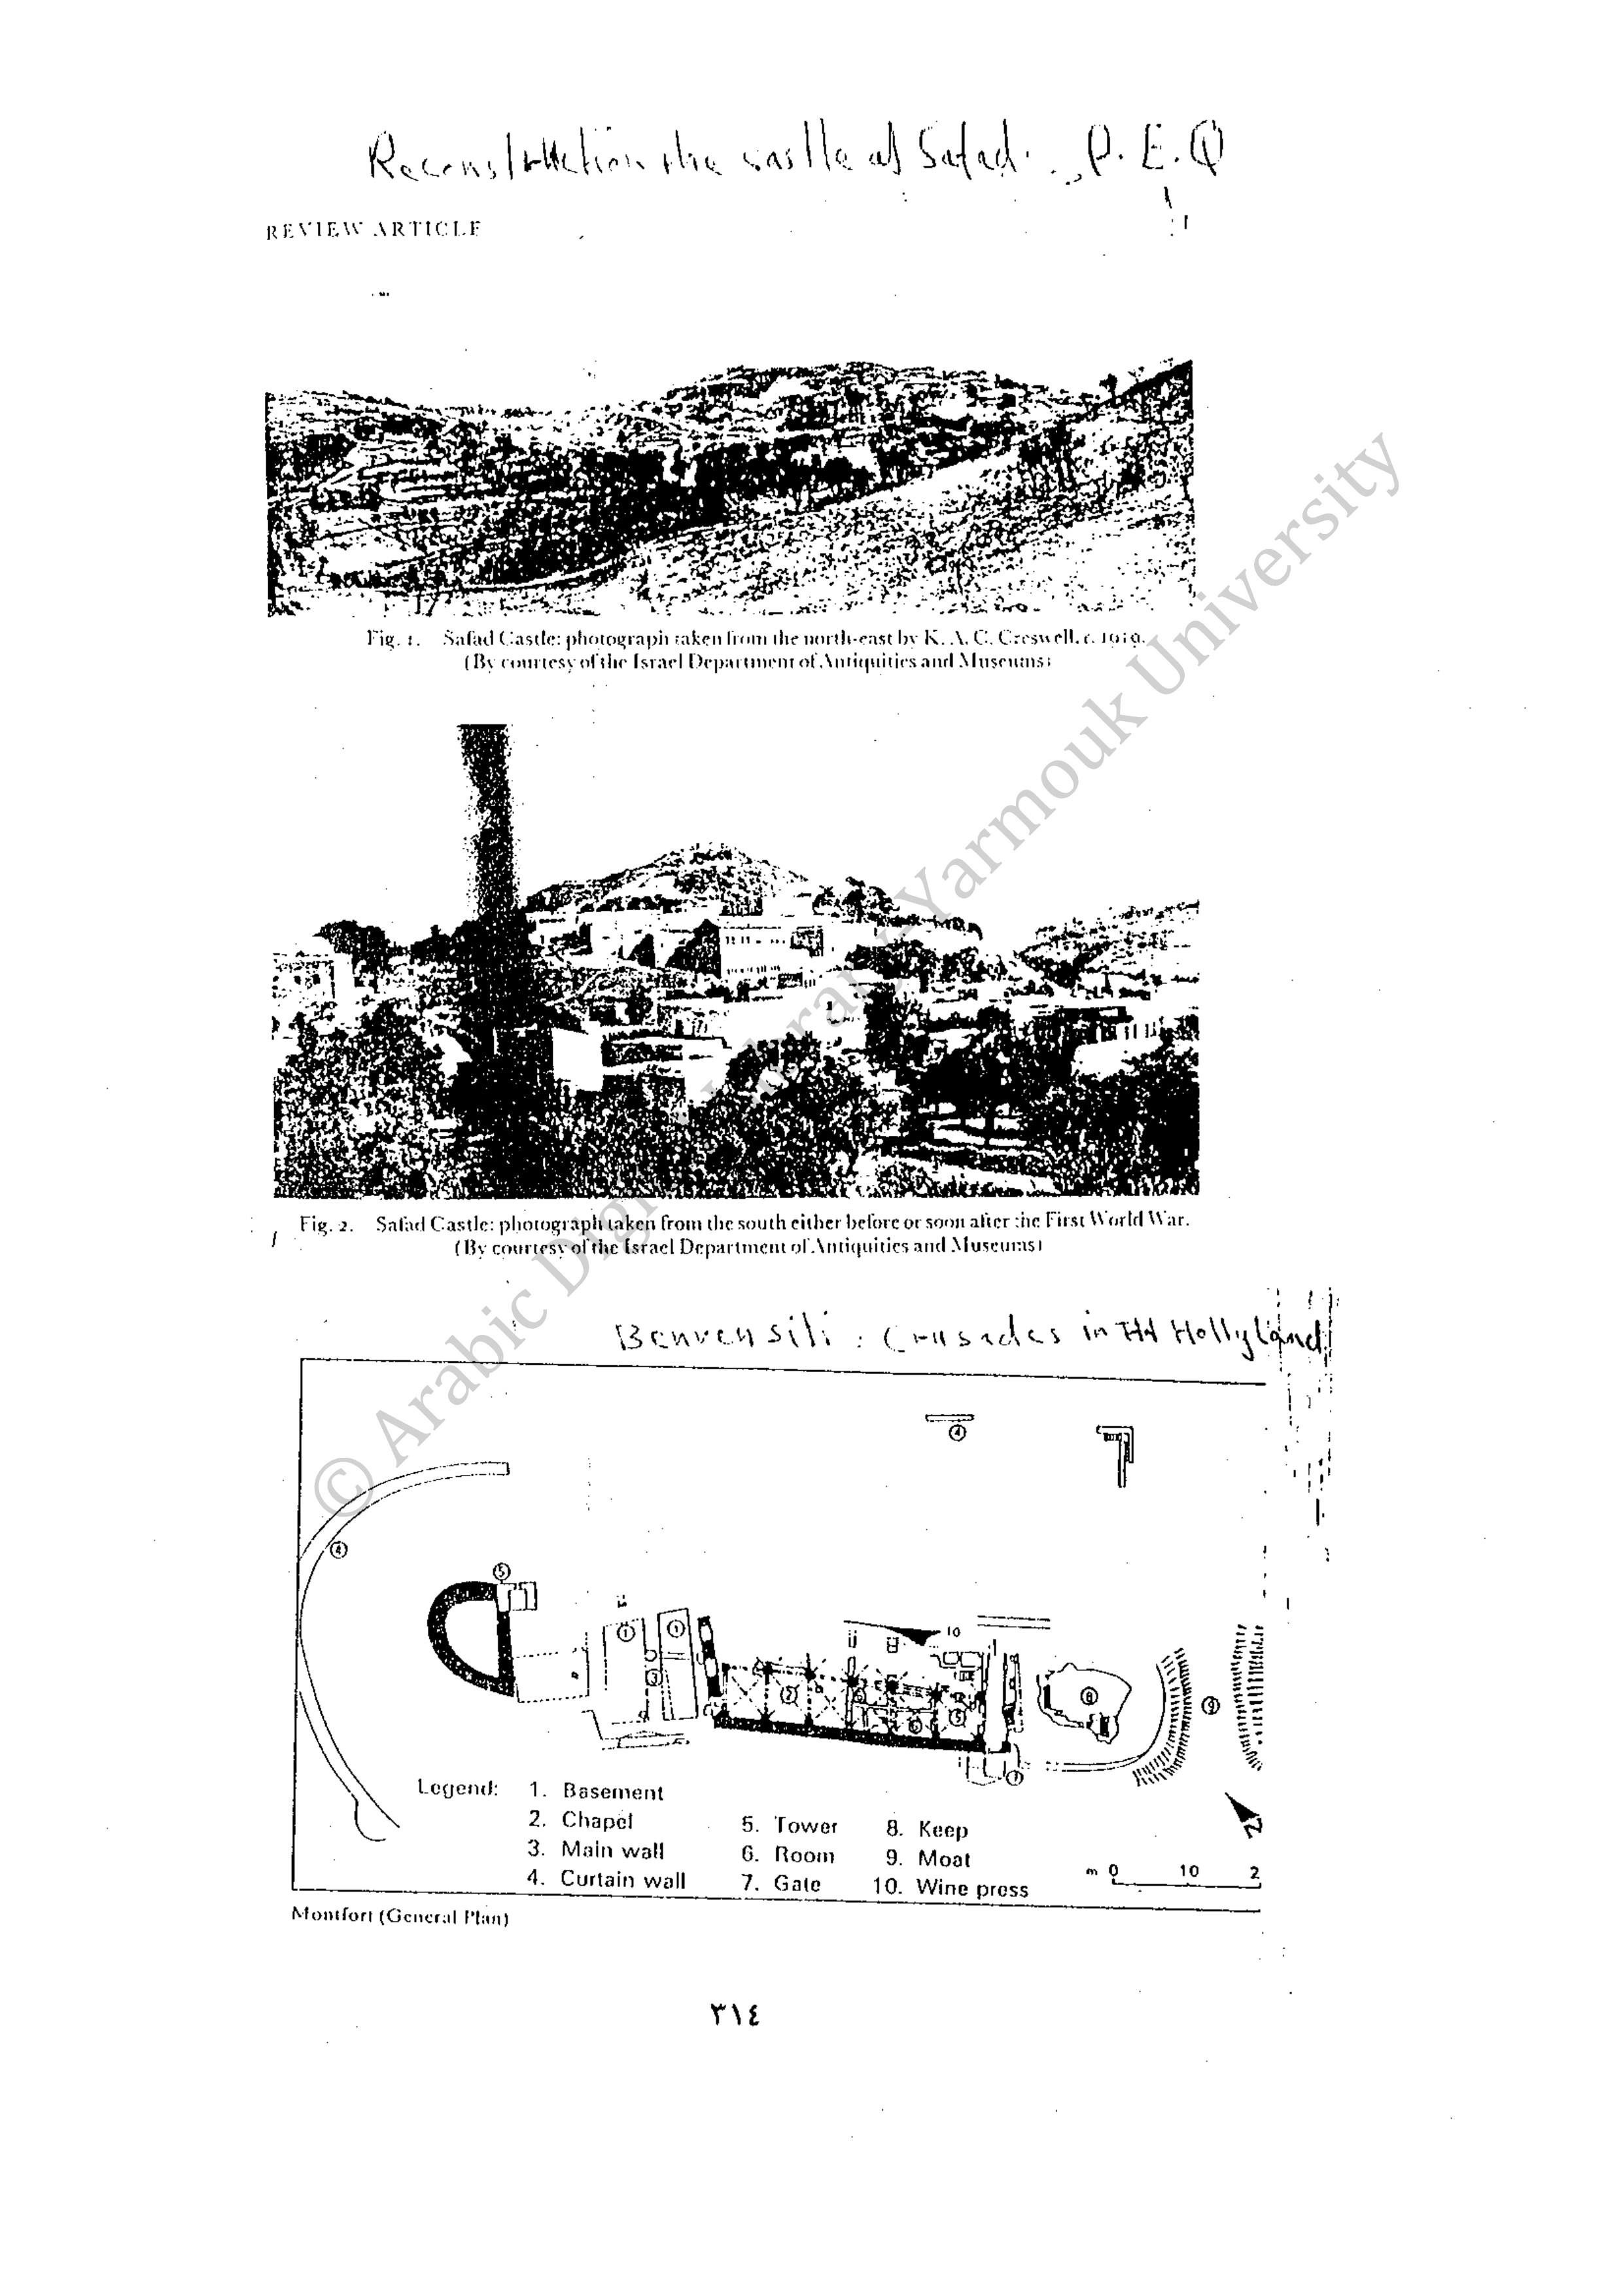 Reconstruction the castle of Safad. P.E.Q
REVIEW ARTICLE
Fig. 1. Safad Castle: photograph taken from the north-east by K. A. C. Creswell, c. 1919.
(By courtesy of the Israel Department of Antiquities and Museums)
Fig. 2. Safad Castle: photograph taken from the south either before or soon after the First World War.
(By courtesy of the Israel Department of Antiquities and Museums)
Benvensili : Crusades in TH Hollyland
4
4
5
1
1
3
10
2
6
5
6
8
9
7
Legend:
1. Basement
2. Chapel
3. Main wall
4. Curtain wall
5. Tower
6. Room
7. Gate
8. Keep
9. Moat
10. Wine press
N
m 0 10 2
Montfort (General Plan)
٣١٤
© Arabic Digital Library-Yarmouk University